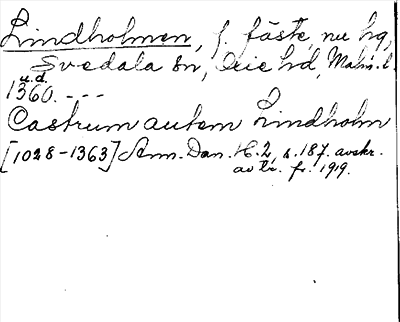 Lindholmen, f. fäste, nu hg,
Svedala sn, Oxie hd, Malm. l.
u.d.
1360. ---
Castrum autem Lindholm
[1028-1363] Ann. Dan. H. 2, s. 187. avskr.
av tr. fr. 1919.